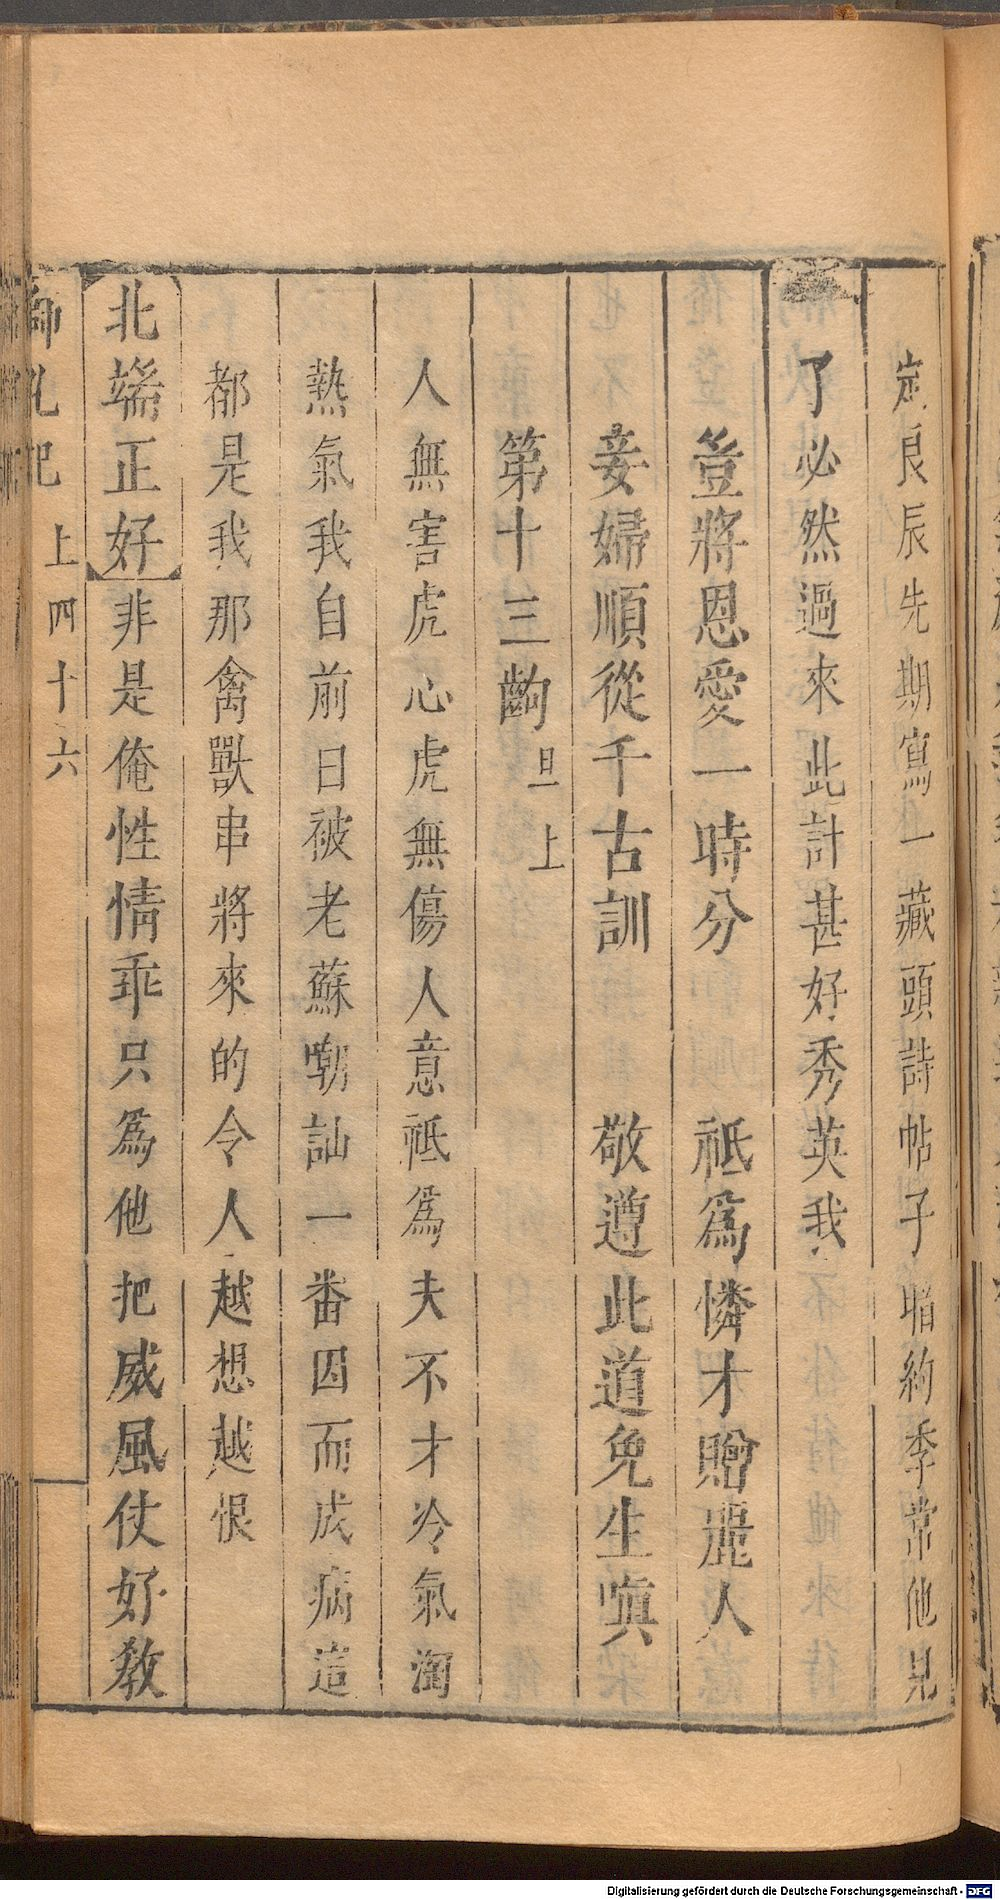 定良辰先期寫一藏頭詩帖子暗約季常他見
了必然過來此計甚好秀英我
豈將恩愛一時分　祗爲憐才贈麗人
妾婦順從千古訓　敬遵此道免生嗔
第十三齣 旦上
人無害虎心虎無傷人意祗爲夫不才冷氣淘
熱氣我自前日被老蘇嘲訕一番因而成病這
都是我那禽獸串將來的令人越想越恨
北端正好 非是俺性情乖只爲他把威風仗好教
獅吼記 上四十六
Digitalisierung gefördert durch die Deutsche Forschungsgemeinschaft - DFG